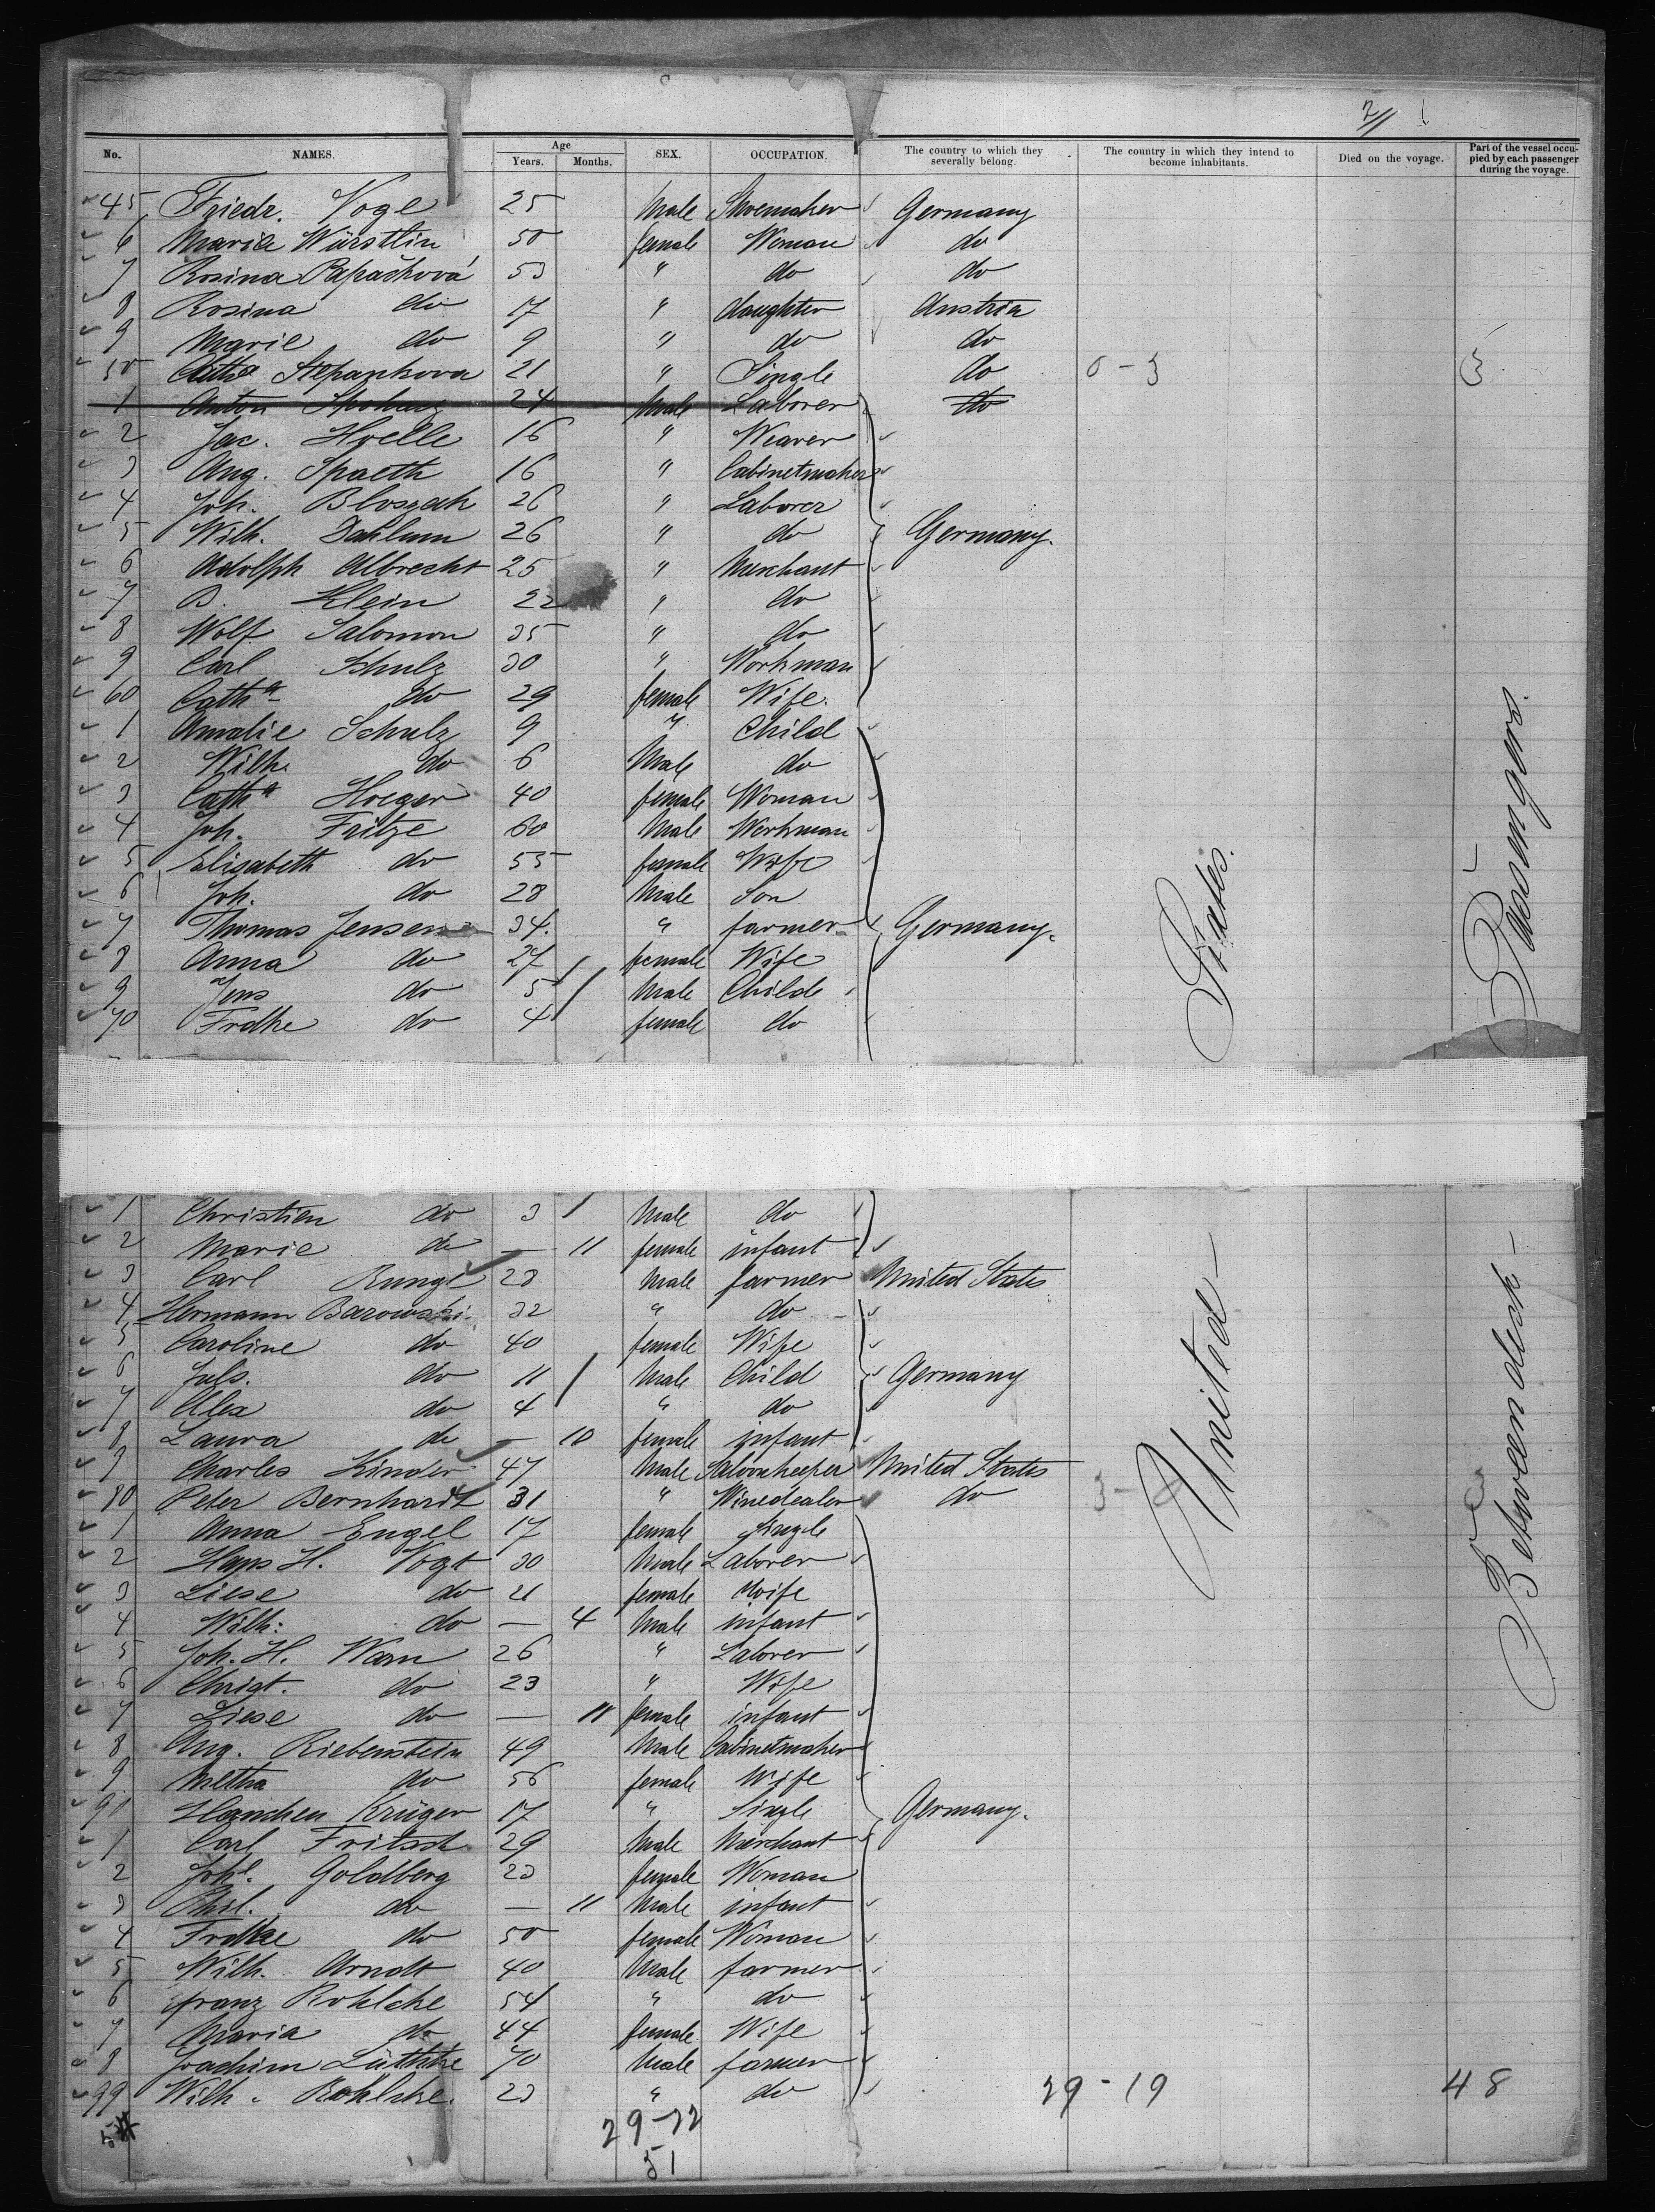 2/1
No. NAMES. Age Years. Months. SEX. OCCUPATION. The country to which they severally belong. The country in which they intend to become inhabitants. Died on the voyage. Part of the vessel occupied by each passenger during the voyage.
45 Friedr. Vogl 25 Male Shoemaker Germany
6 Maria Würstlin 50 female Woman do
7 Rosina Papačková 53 " do do
8 Rosina do 17 " daughter Austria
9 Marie do 9 " do do
50 Cath^a Stepankova 21 " Single do 0-3 3
1 Anton 24 Male Laborer do
2 Jac. Hoelle 16 " Weaver
3 Aug. Spaeth 16 " Cabinetmaker
4 Joh. Bloszek 26 " Laborer
5 Wilh. Dahlum 26 " do Germany.
6 Adolph Albrecht 25 " Merchant
7 B. Klein 22 " do
8 Wolf Salomon 35 " do
9 Carl Schulz 30 " Workman
60 Cath^a do 29 female Wife.
1 Amalie Schulz 9 " Child
2 Wilh. do 6 Male do
3 Cath^a Hoeger 40 female Woman
4 Joh. Fritze 60 Male Workman
5 Elisabeth do 55 female Wife
6 Joh. do 28 Male Son
7 Thomas Jensen 34. " farmer Germany.
8 Anna do 27 female Wife
9 Jens do 5 Male Childe
70 Frdke do 4 female do
1 Christien do 3 Male do
2 Marie do — 11 female infant
3 Carl Runge 28 Male farmer United States
4 Hermann Barowski 32 " do
5 Caroline do 40 female Wife
6 Juls. do 11 Male Child Germany
7 Alex do 4 " do
8 Laura do — 10 female infant
9 Charles Kinder 47 Male Saloonkeeper United States
80 Peter Bernhardt 31 " Winedealer do
1 Anna Engel 17 female Single
2 Hans H. Vogt 30 Male Laborer
3 Liese do 21 female Wife
4 Wilh: do — 4 Male infant
5 Joh. H. Warn 26 " Laborer
6 Christ. do 23 " Wife
7 Liese do — 11 female infant
8 Aug. Riebenstein 49 Male Cabinetmaker
9 Metha do 56 female Wife
90 Hanchen Krüger 17 " Single Germany.
1 Carl Fritsch 29 Male Merchant
2 Joh^e. Goldberg 23 female Woman
3 Phil. do — 11 Male infant
4 Frdke do 50 female Woman
5 Wilh. Arndt 40 Male farmer
6 Franz Rohlcke 54 " do
7 Maria do 44 female Wife
8 Joachim Lüthtke 70 Male farmer
99 Wilh. Rohlcke. 23 " do 29-19 48
29-22
51
United States.
Between deck Passengers.